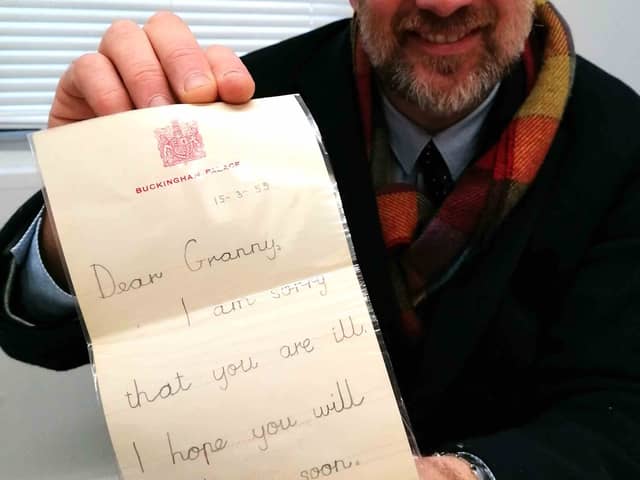 BUCKINGHAM PALACE
15-3-55
Dear Granny,
I am sorry
that you are ill.
I hope you will
soon.